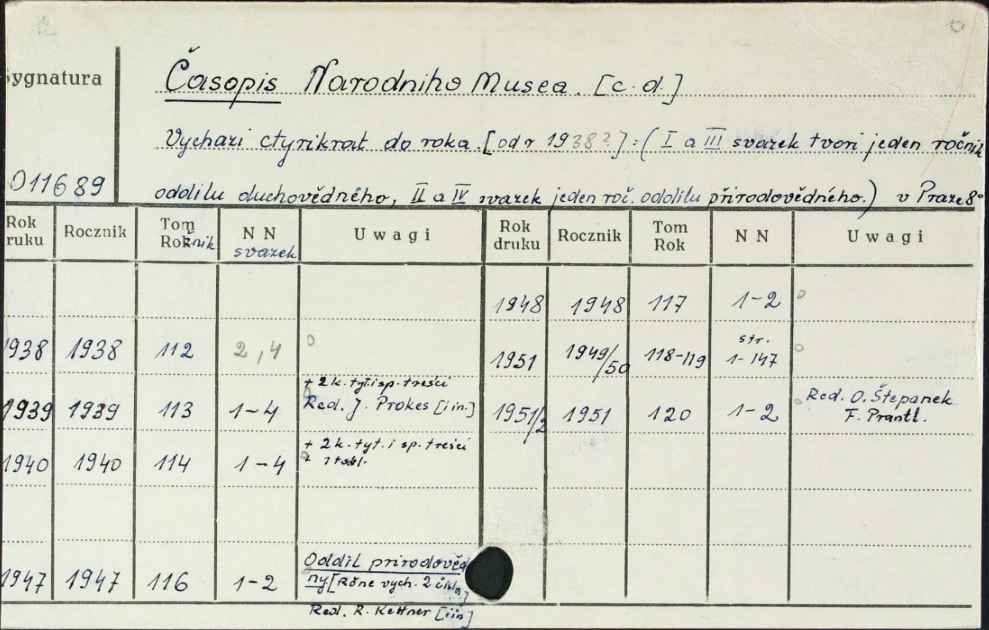 Sygnatura
Časopis Narodniho Musea. [c.d.]
Vychazi čtyrikrat do roka. [od r 1938?]: (I a III svazek tvori jeden ročnik
011689
oddilu duchovědného, II a IV svazek jeden roč. oddilu přirodovědného.) v Praze 8°
Rok ruku Rocznik Tom Rok žnik N N svazek Uwagi Rok druku Rocznik Tom Rok N N Uwagi
1948 1948 117 1-2
1938 1938 112 2,4 1951 1949/50 118-119 str. 1-147
1939 1939 113 1-4 + 2 k. tyt. i sp. treści
Red. J. Prokes [i in.] 1951/2 1951 120 1-2 Red. O. Štepanek
F. Prantl.
1940 1940 114 1-4 + 2k. tyt. i sp. treści
+ 1 tabl.
1947 1947 116 1-2 Oddil prirodověd
ny [Rčne vych. 2 čisla]
Red. R. Kettner [i in.]